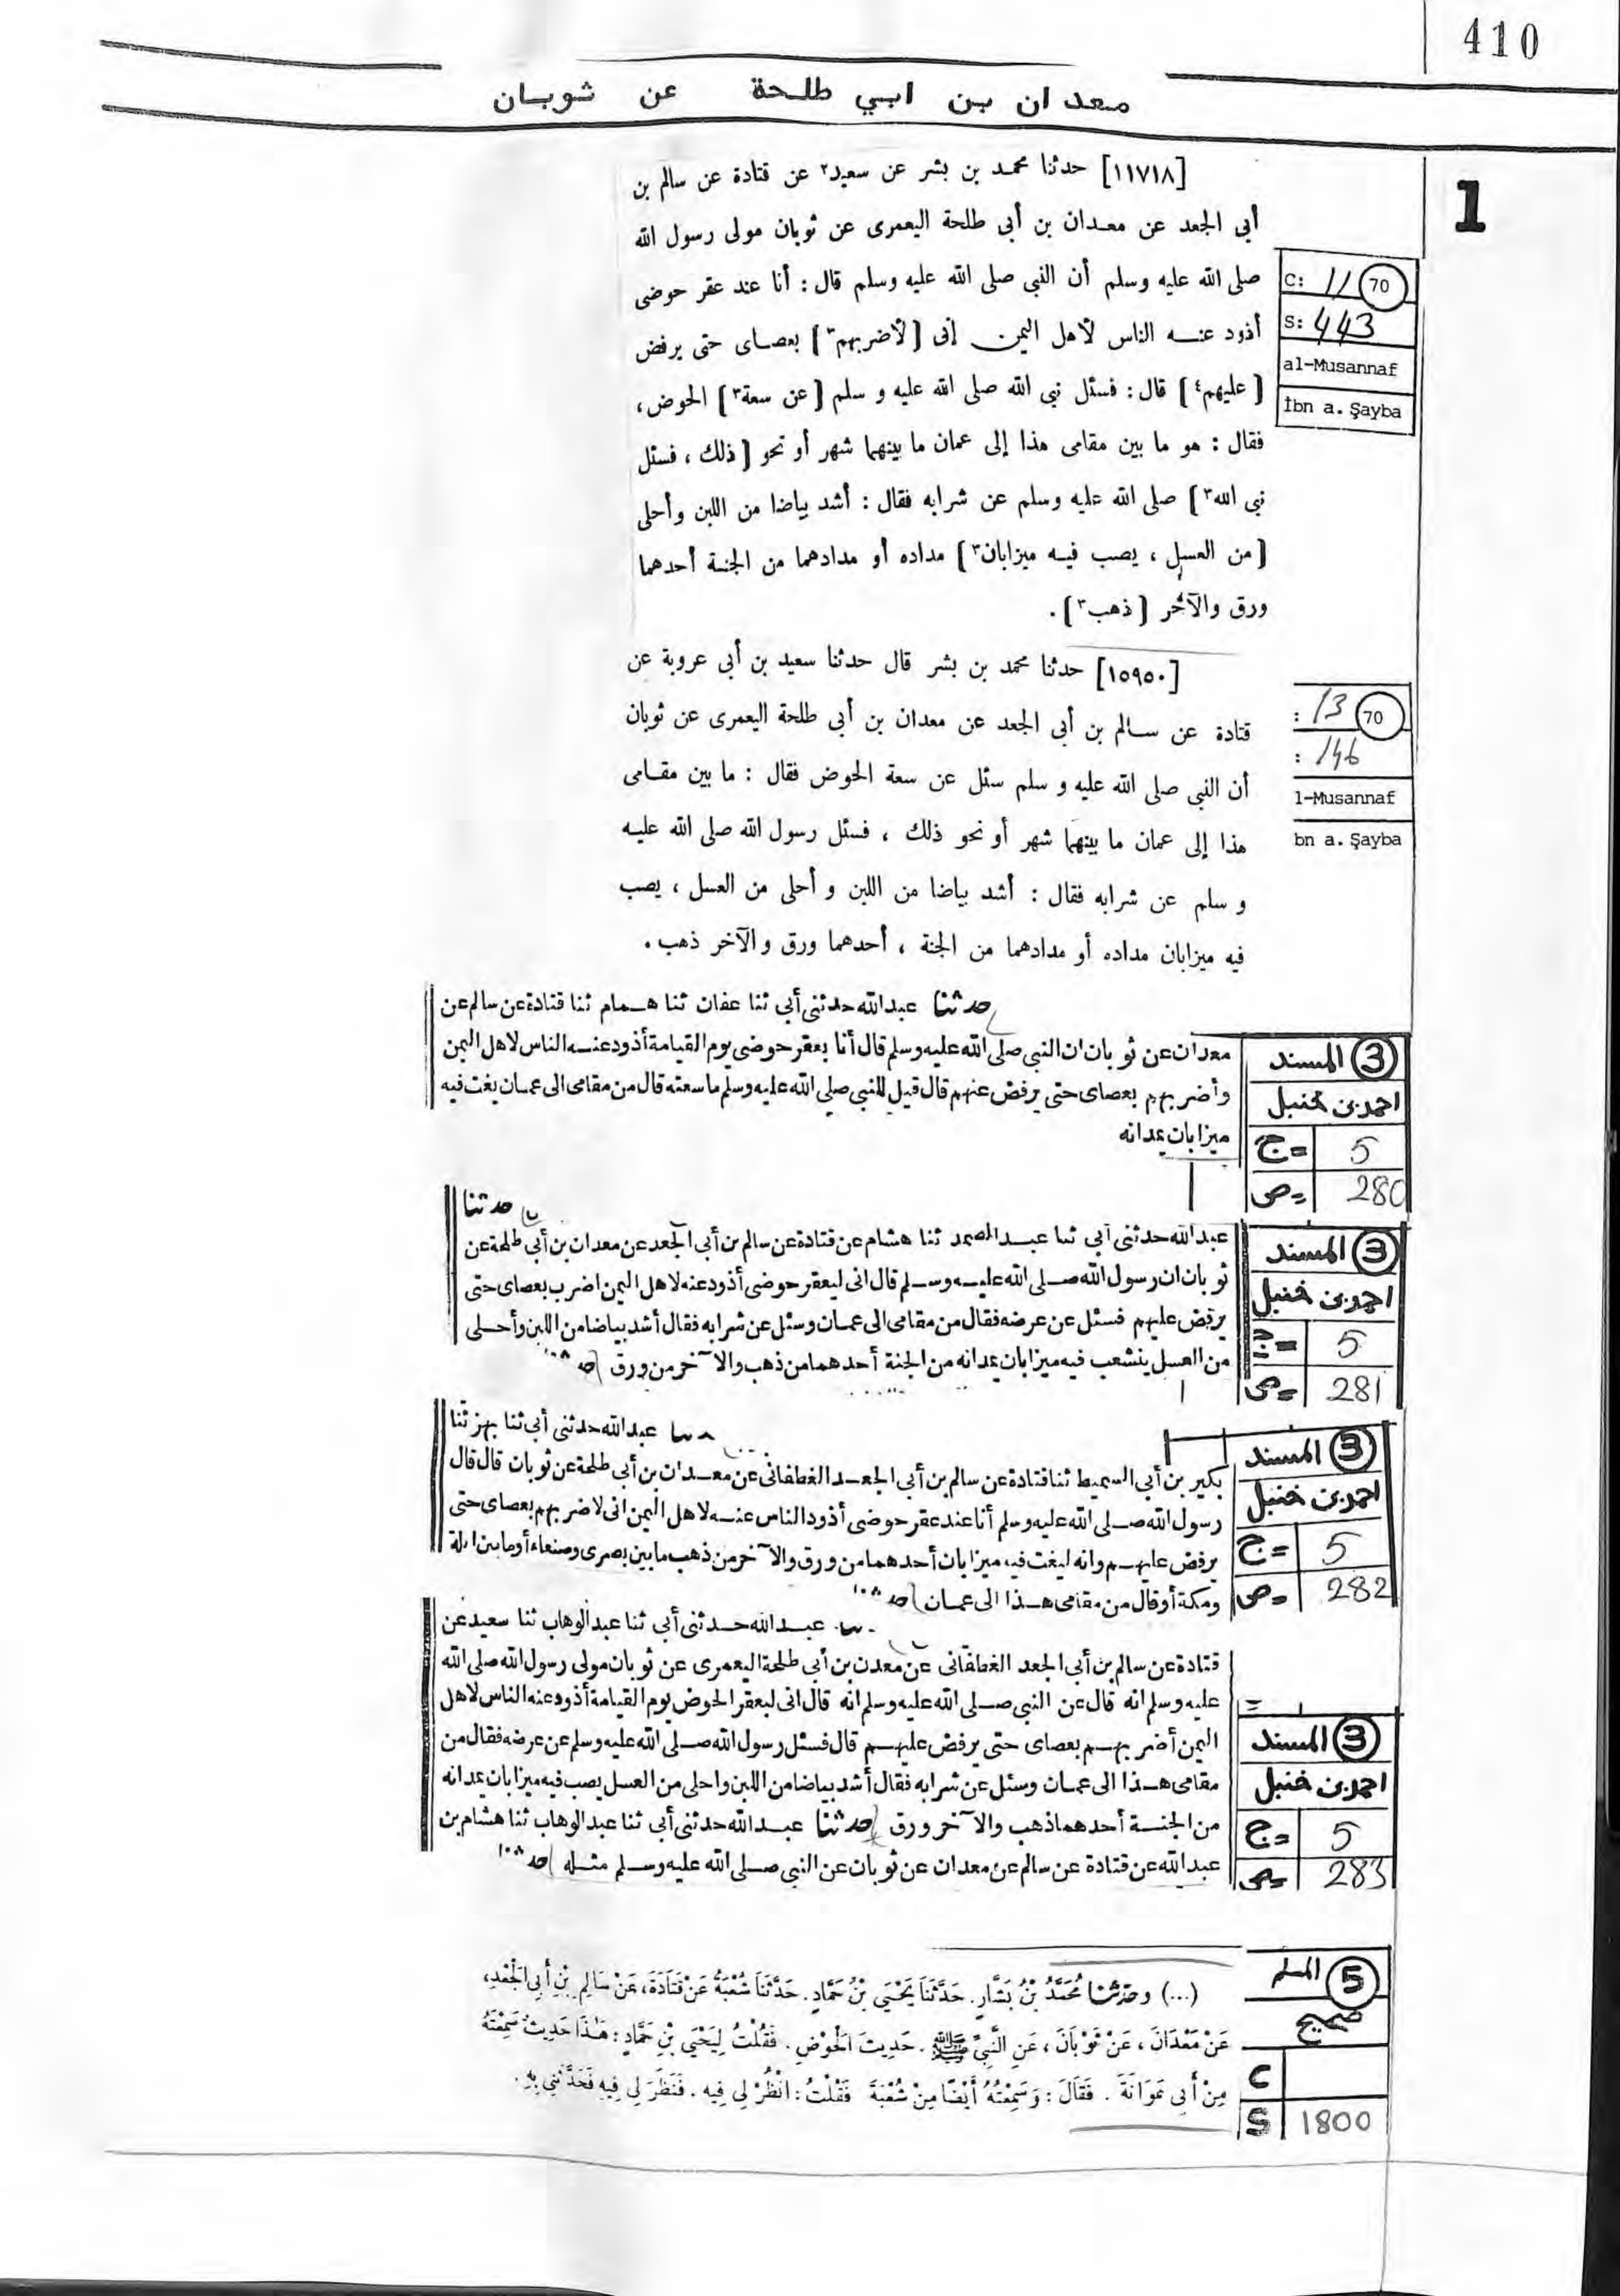 410
معدان بن ابي طلحة عن ثوبان
1
[١١٧١٨] حدثنا محمد بن بشر عن سعيد٢ عن قتادة عن سالم بن
أبى الجعد عن معدان بن أبى طلحة اليعمرى عن ثوبان مولى رسول الله
صلى الله عليه وسلم أن النبى صلى الله عليه وسلم قال : أنا عند عقر حوضى
أذود عنه الناس لأهل اليمن إنى [ لأضربهم٣ ] بعصاى حتى يرفض
[ عليهم٤ ] قال : فسئل نبى الله صلى الله عليه و سلم [ عن سعة٣ ] الحوض ،
فقال : هو ما بين مقامى هذا إلى عمان ما بينهما شهر أو نحو [ ذلك ، فسئل
نبى الله٣ ] صلى الله عليه وسلم عن شرابه فقال : أشد بياضا من اللبن وأحلى
[ من العسل ، يصب فيه ميزابان٣ ] مداده أو مدادهما من الجنة أحدهما
ورق والآخر [ ذهب٣ ] .
C: 11 70
S: 443
al-Musannaf
İbn a. Şayba
[١٥٩٥٠] حدثنا محمد بن بشر قال حدثنا سعيد بن أبى عروبة عن
قتادة عن سالم بن أبى الجعد عن معدان بن أبى طلحة اليعمرى عن ثوبان
أن النبى صلى الله عليه و سلم سئل عن سعة الحوض فقال : ما بين مقامى
هذا إلى عمان ما بينهما شهر أو نحو ذلك ، فسئل رسول الله صلى الله عليه
و سلم عن شرابه فقال : أشد بياضا من اللبن و أحلى من العسل ، يصب
فيه ميزابان مداده أو مدادهما من الجنة ، أحدهما ورق والآخر ذهب .
: 13 70
: 146
l-Musannaf
bn a. Şayba
حدثنا عبدالله حدثنى أبى ثنا عفان ثنا همام ثنا قتادة عن سالم عن
معدان عن ثوبان ان النبى صلى الله عليه وسلم قال أنا بعقر حوضى يوم القيامة أذود عنه الناس لاهل اليمن
وأضربهم بعصاى حتى يرفض عنهم قال قيل للنبى صلى الله عليه وسلم ما سعته قال من مقامى الى عمان يغت فيه
ميزابان يمدانه
3 المسند
احمد بن حنبل
ج = 5
ص = 280
حدثنا
عبدالله حدثنى أبى ثنا عبد الصمد ثنا هشام عن قتادة عن سالم بن أبى الجعد عن معدان بن أبى طلحة عن
ثوبان ان رسول الله صلى الله عليه وسلم قال انى لبعقر حوضى أذود عنه لاهل اليمن اضرب بعصاى حتى
يرفض عليهم فسئل عن عرضه فقال من مقامى الى عمان وسئل عن شرابه فقال أشد بياضا من اللبن وأحلى
من العسل ينشعب فيه ميزابان يمدانه من الجنة أحدهما من ذهب والآخر من ورق
3 المسند
احمد بن حنبل
ج = 5
ص = 281
عبدالله حدثنى أبى ثنا بهز ثنا
بكير بن أبى السميط ثنا قتادة عن سالم بن أبى الجعد الغطفانى عن معدان بن أبى طلحة عن ثوبان قال قال
رسول الله صلى الله عليه وسلم أنا عند عقر حوضى أذود الناس عنه لاهل اليمن انى لاضربهم بعصاى حتى
يرفض عليهم وانه ليغت فيه ميزابان أحدهما من ورق والآخر من ذهب ما بين بصرى وصنعاء أو ما بين ايلة
ومكة أو قال من مقامى هذا الى عمان
3 المسند
احمد بن حنبل
ج = 5
ص = 282
عبدالله حدثنى أبى ثنا عبدالوهاب ثنا سعيد عن
قتادة عن سالم بن أبى الجعد الغطفانى عن معدن بن أبى طلحة اليعمرى عن ثوبان مولى رسول الله صلى الله
عليه وسلم انه قال عن النبى صلى الله عليه وسلم انه قال انى لبعقر الحوض يوم القيامة أذود عنه الناس لاهل
اليمن أضربهم بعصاى حتى يرفض عليهم قال فسئل رسول الله صلى الله عليه وسلم عن عرضه فقال من
مقامى هذا الى عمان وسئل عن شرابه فقال أشد بياضا من اللبن واحلى من العسل يصب فيه ميزابان يمدانه
من الجنة أحدهما ذهب والآخر ورق حدثنا عبدالله حدثنى أبى ثنا عبدالوهاب ثنا هشام بن
عبدالله عن قتادة عن سالم عن معدان عن ثوبان عن النبى صلى الله عليه وسلم مثله
3 المسند
احمد بن حنبل
ج = 5
ص = 283
(...) وحدثنا مُحَمَّدُ بْنُ بَشَّارٍ. حَدَّثَنَا يَحْيَى بْنُ حَمَّادٍ. حَدَّثَنَا شُعْبَةُ عَنْ قَتَادَةَ، عَنْ سَالِمِ بْنِ أَبِى الْجَعْدِ،
عَنْ مَعْدَانَ، عَنْ ثَوْبَانَ، عَنِ النَّبِىِّ ﷺ. حَدِيثَ الْحَوْضِ. فَقُلْتُ لِيَحْيَى بْنِ حَمَّادٍ: هَذَا حَدِيثٌ سَمِعْتَهُ
مِنْ أَبِى عَوَانَةَ. فَقَالَ: وَسَمِعْتُهُ أَيْضًا مِنْ شُعْبَةَ فَقُلْتُ: انْظُرْ لِى فِيهِ. فَنَظَرَ لِى فِيهِ فَحَدَّثَنِى بِهِ.
5 المسلم
صحيح
C
S 1800